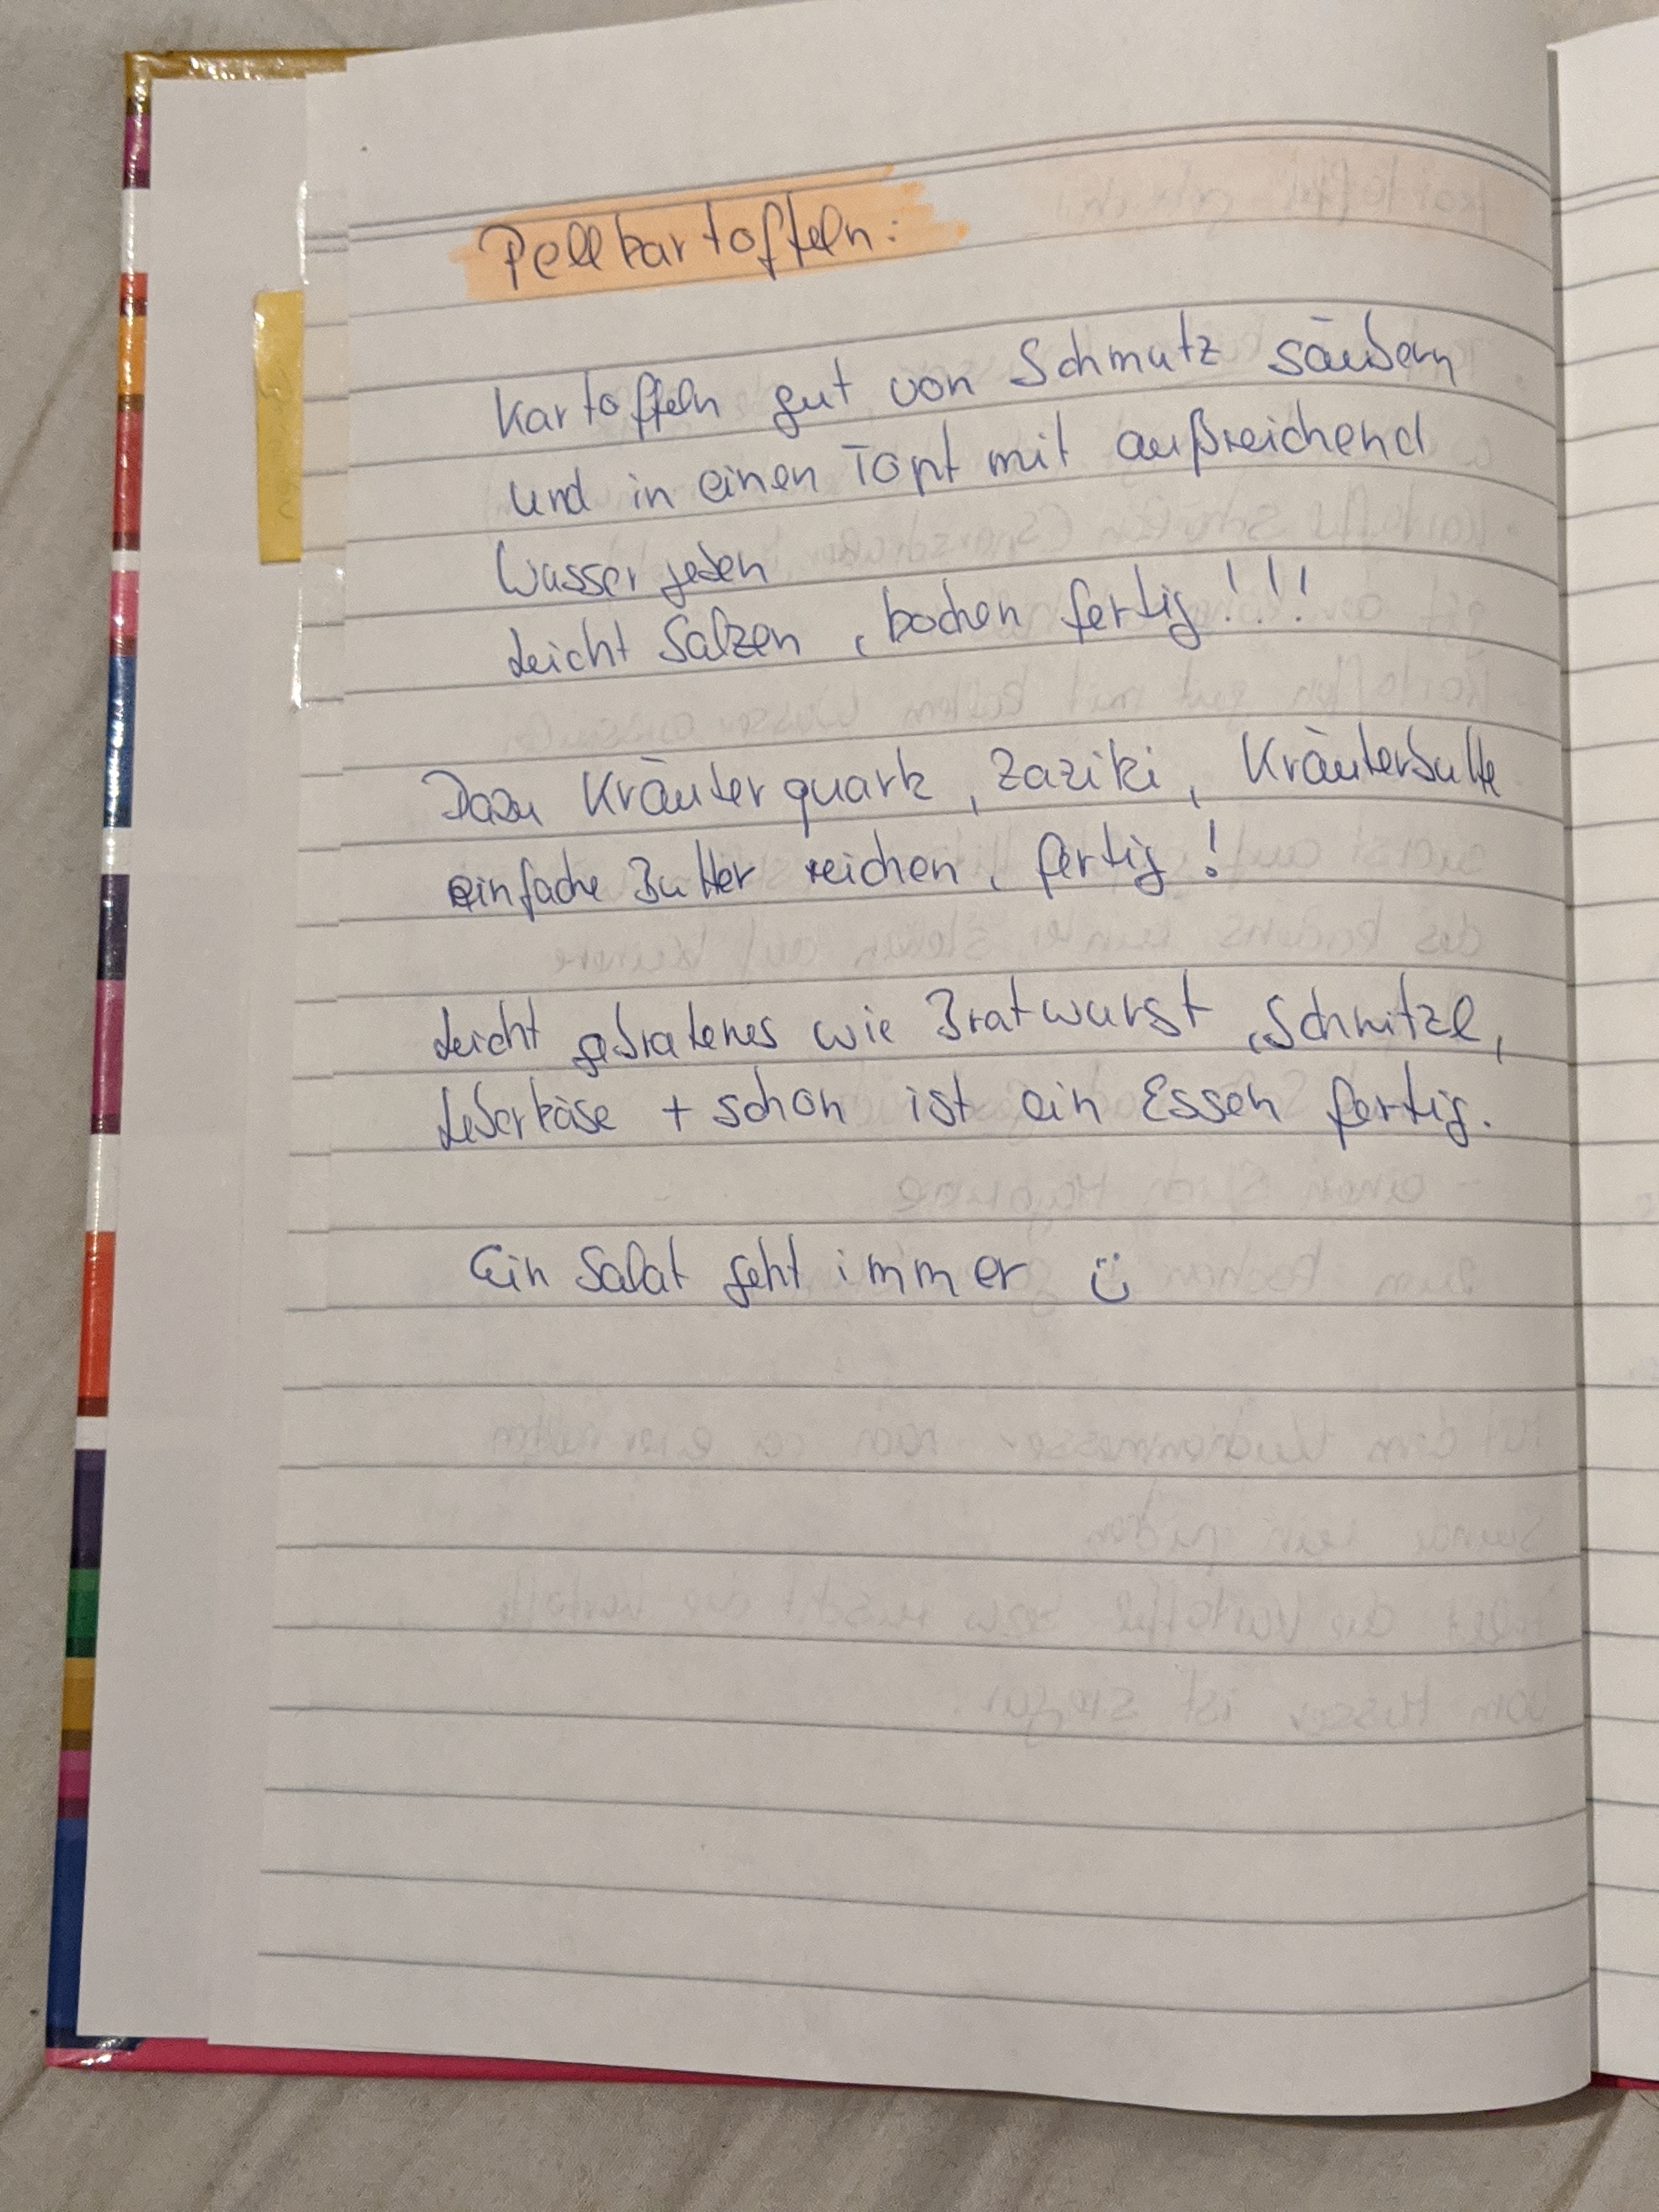 Pellkartoffeln:
Kartoffeln gut von Schmutz säubern
und in einen Topf mit außreichend
Wasser geben
Leicht Salzen, kochen fertig!!!
Dazu Kräuterquark, Zaziki, Kräuterbutte
einfache Butter reichen, fertig!
Leicht gebratenes wie Bratwurst, Schnitzel,
Leberkäse + schon ist ein Essen fertig.
Ein Salat geht immer ü